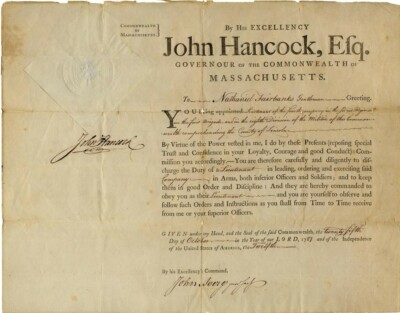 COMMONWEALTH
OF
MASSACHUSETTS.
By His EXCELLENCY
John Hancock, Esq.
GOVERNOUR OF THE COMMONWEALTH OF
MASSACHUSETTS.
To Nathaniel Fairbanks Gentleman Greeting.
YOU being appointed Lieutenant of the
in the first Brigade and in the eighth Division of the Militia of this Common-
wealth comprehending the County of Lincoln
By Virtue of the Power vested in me, I do by these Presents (reposing special
Trust and Confidence in your Loyalty, Courage and good Conduct) Com-
mission you accordingly.—You are therefore carefully and diligently to dis-
charge the Duty of a Lieutenant in leading, ordering and exercising said
Company in Arms, both inferior Officers and Soldiers; and to keep
them in good Order and Discipline: And they are hereby commanded to
obey you as their Lieutenant and you are yourself to observe and
follow such Orders and Instructions as you shall from Time to Time receive
from me or your superior Officers.
John Hancock
GIVEN under my Hand, and the Seal of the said COMMONWEALTH, the twenty fifth
Day of October in the Year of our LORD, 1787 and of the Independence
of the United States of AMERICA, the Twelfth
By his Excellency's Command.
John Avery jun Sec